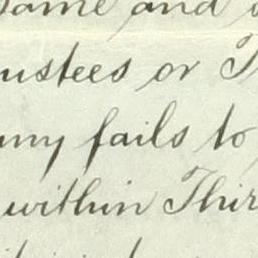 same and
ustees or T
any fails to
within Thir